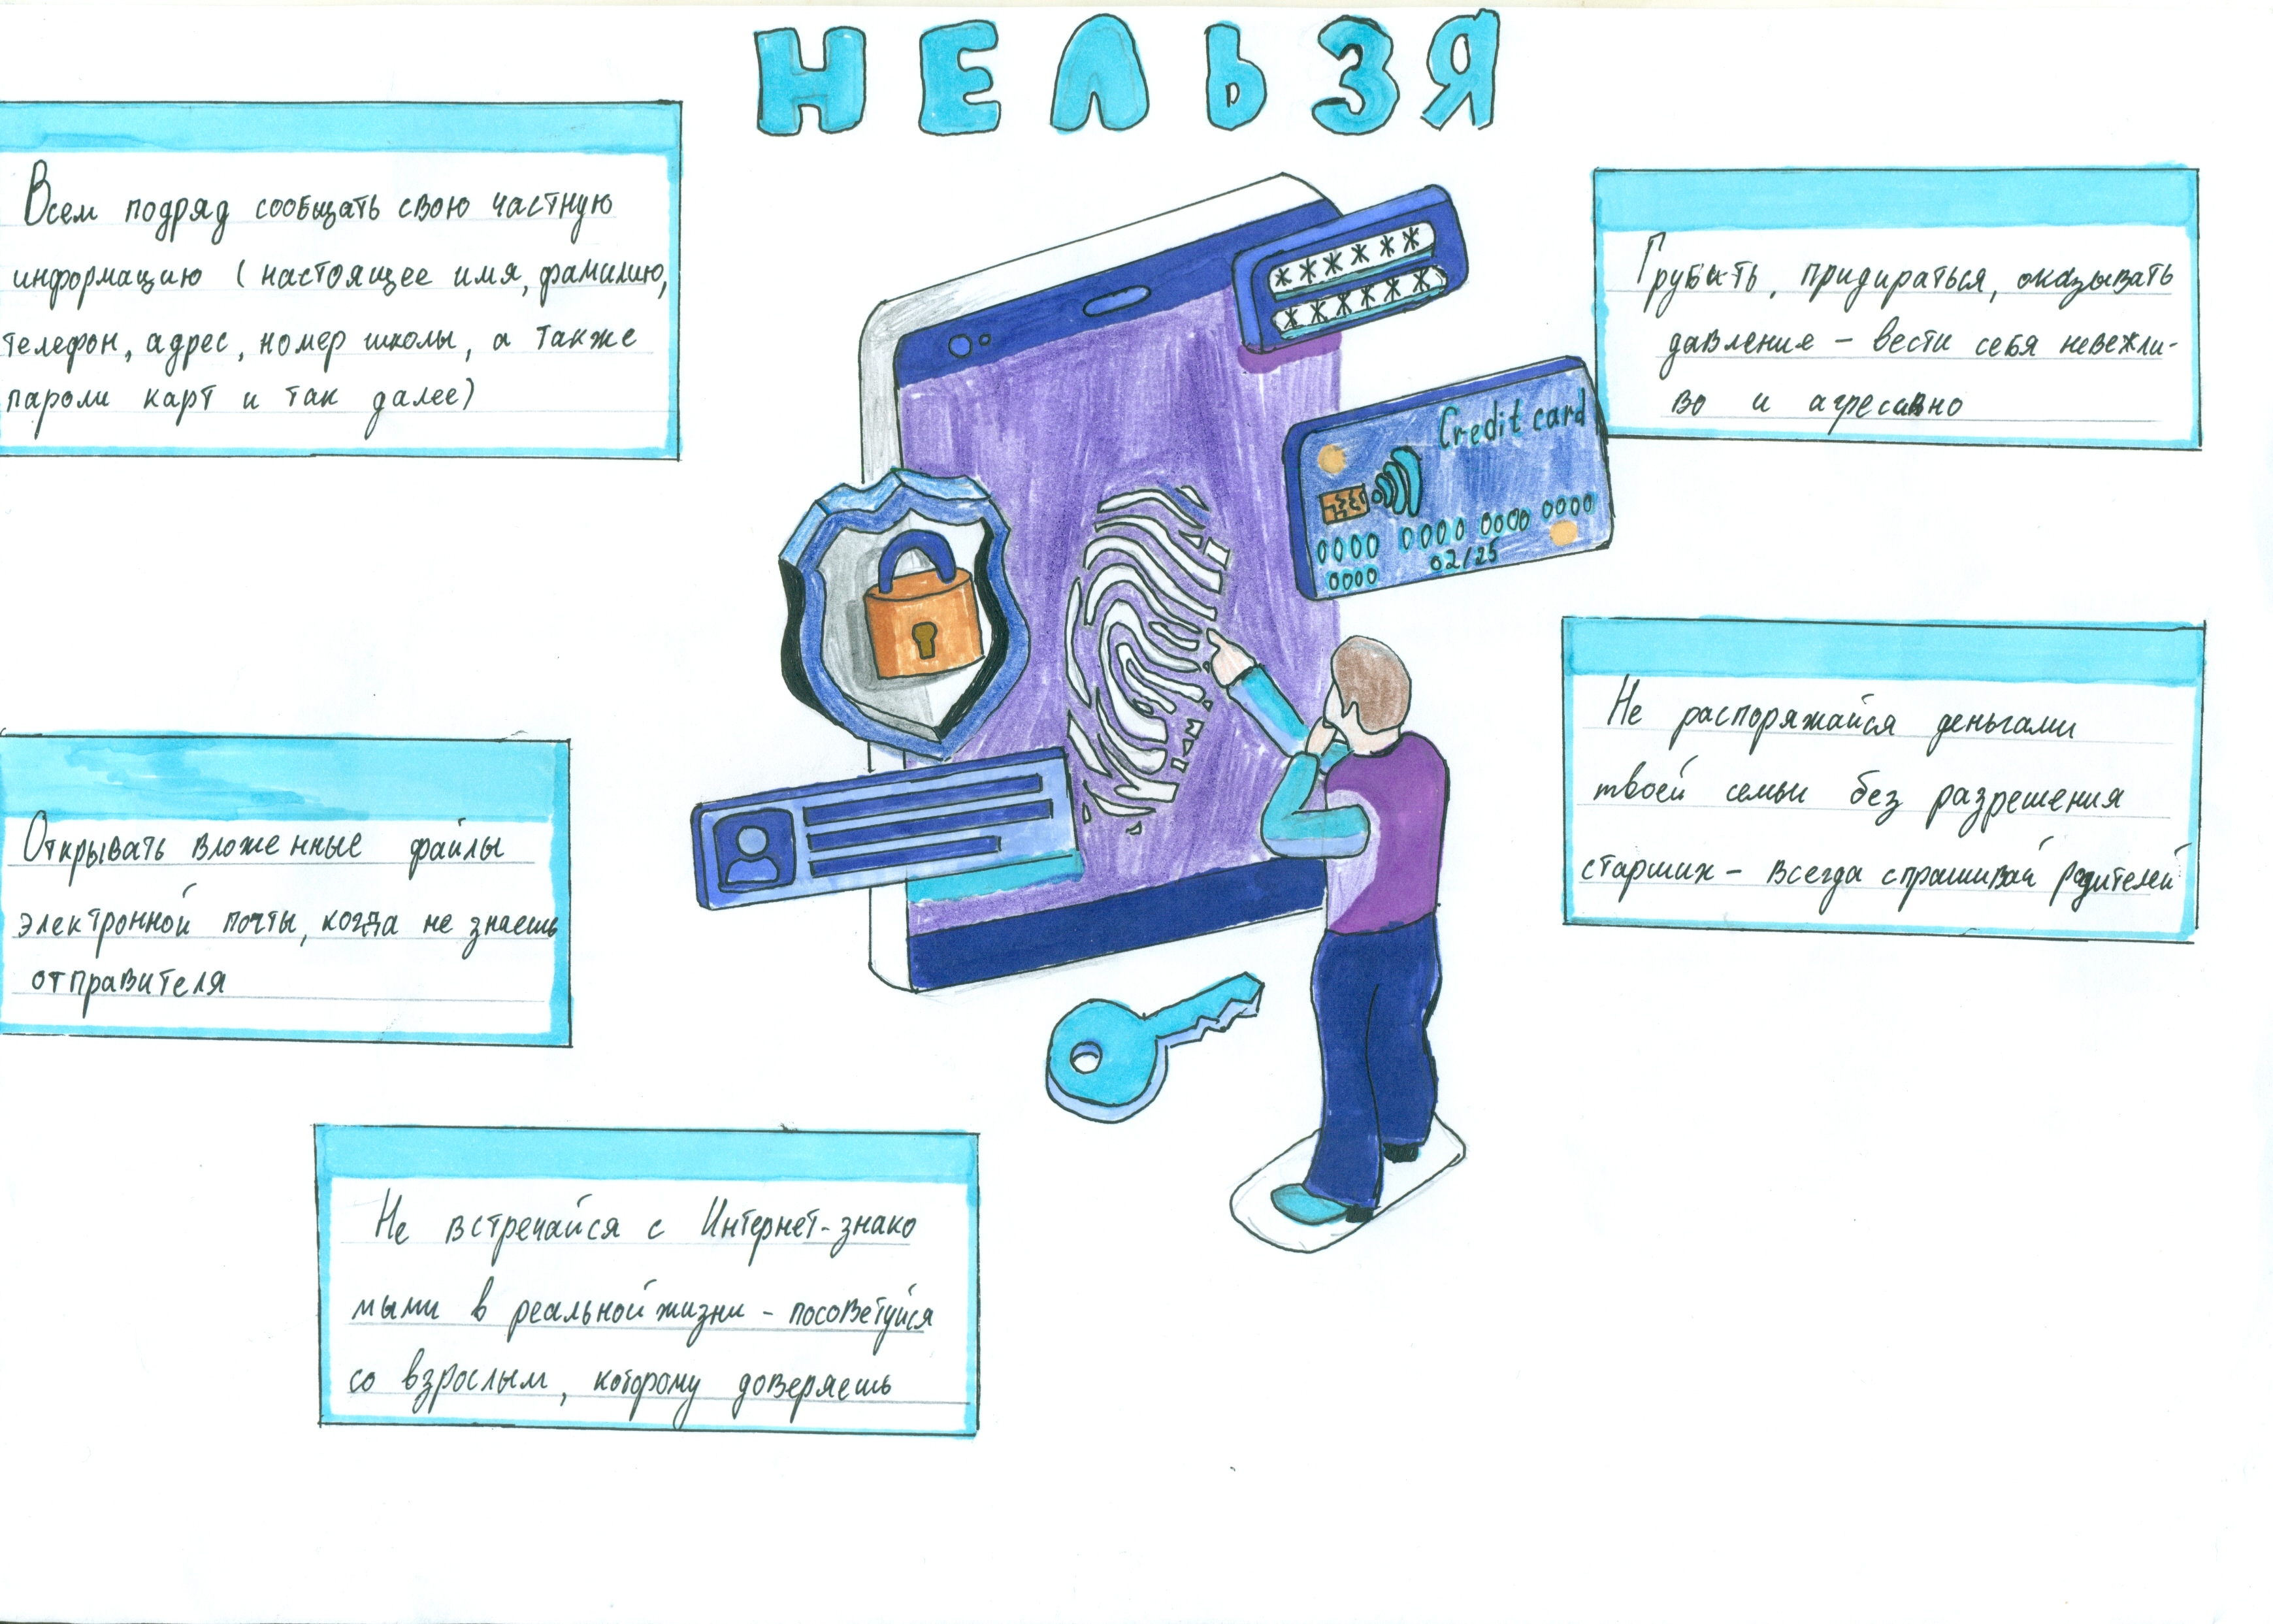 НЕЛЬЗЯ
Всем подряд сообщать свою частную
информацию (настоящее имя, фамилию,
телефон, адрес, номер школы, а также
пароли карт и так далее)
Грубить, придираться, оказывать
давление – вести себя невежли-
во и агресивно
******
******
Credit card
0000 0000 0000 0000
02/25
0000
Не распоряжайся деньгами
твоей семьи без разрешения
старших – всегда спрашивай родителей
Открывать вложенные файлы
электронной почты, когда не знаешь
отправителя
Не встречайся с Интернет-знако
мыми в реальной жизни – посоветуйся
со взрослым, которому доверяешь